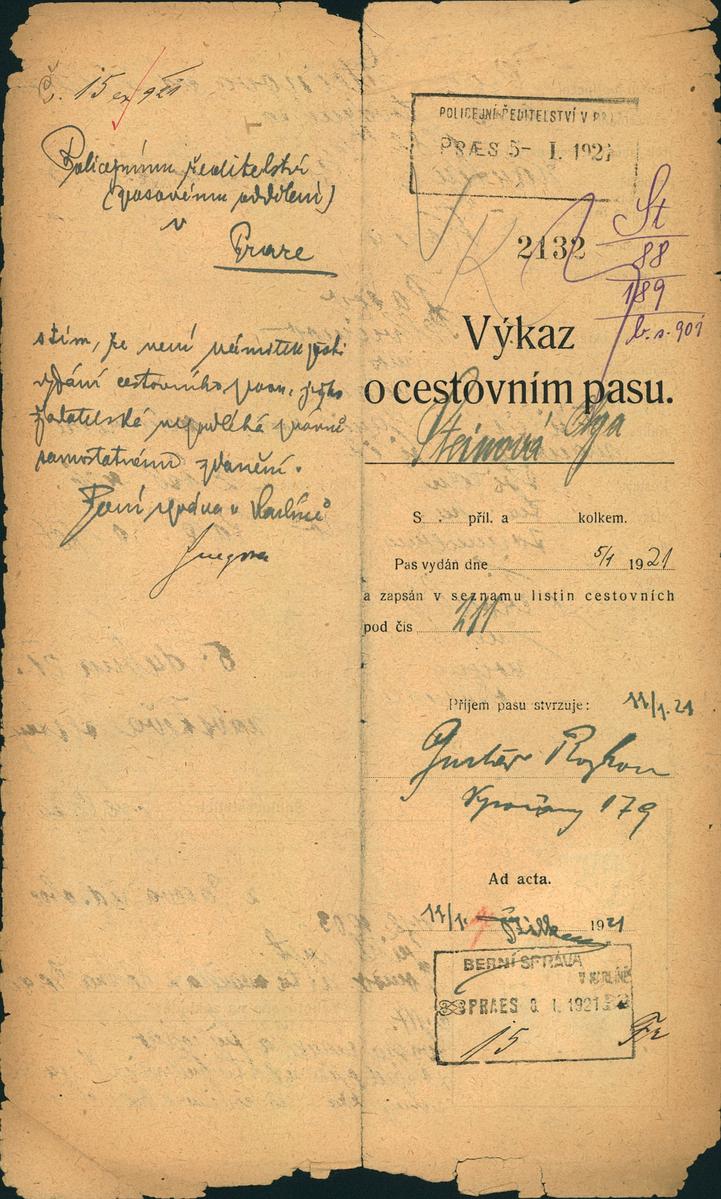 Č. 15 ex 921
Policejnímu ředitelství
(pasovému oddělení)
v
Praze
s tím, že není námitek proti
vydání cestovního pasu, jeho
žadatelka nepodléhá
samostatnému zdanění.
Berní správa v Karlíně
POLICEJNÍ ŘEDITELSTVÍ V PRAZE
PRAES 5- I. 1921
2132
St
88
189
b. s. 901
Výkaz
o cestovním pasu.
Steinová Olga
S . příl. a kolkem.
Pas vydán dne 5/1 1921
a zapsán v seznamu listin cestovních
pod čís 211
Příjem pasu stvrzuje: 11/1. 21
Gustav
Vysočany 179
Ad acta.
11/1. 1921
BERNÍ SPRÁVA
V KARLÍNĚ
PRAES 8 I. 1921
15